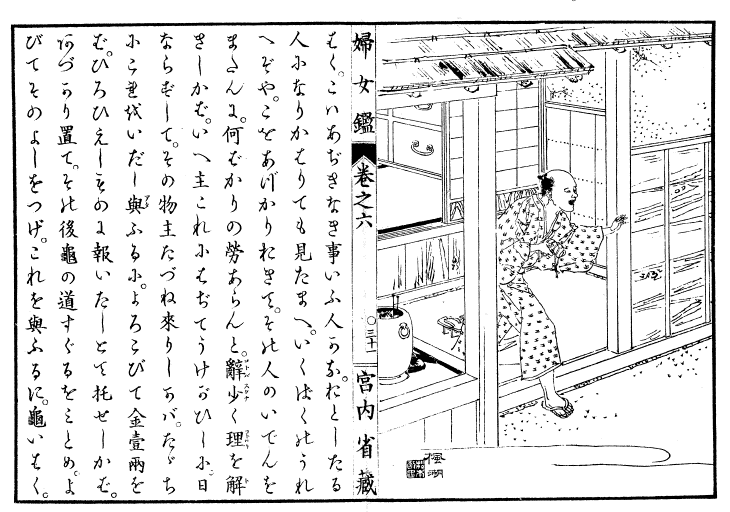 楓湖
婦女鑑 卷之六 ○三十一 宮内省藏
はく。こハあぢきなき事いふ人かな。おとしたる
人になりかはりても見たまへ。いくばくのうれ
へぞや。こをあづかりおきて。その人のいでんを
またんに。何ばかりの勞あらんと。辭少く理を解
きしかば。いへ主これにはぢてうけがひしに。日
ならずして。その物主たづね來りしかバ。たゞち
にこれをいだし與ふるに。よろこびて金壹兩を
ば。ひろひえしものに報いたしとて托せしかば。
あづかり置て。その後龜の道すぐるをみとめ。よ
びてそのよしをつげ。これを與ふるに。龜いはく。